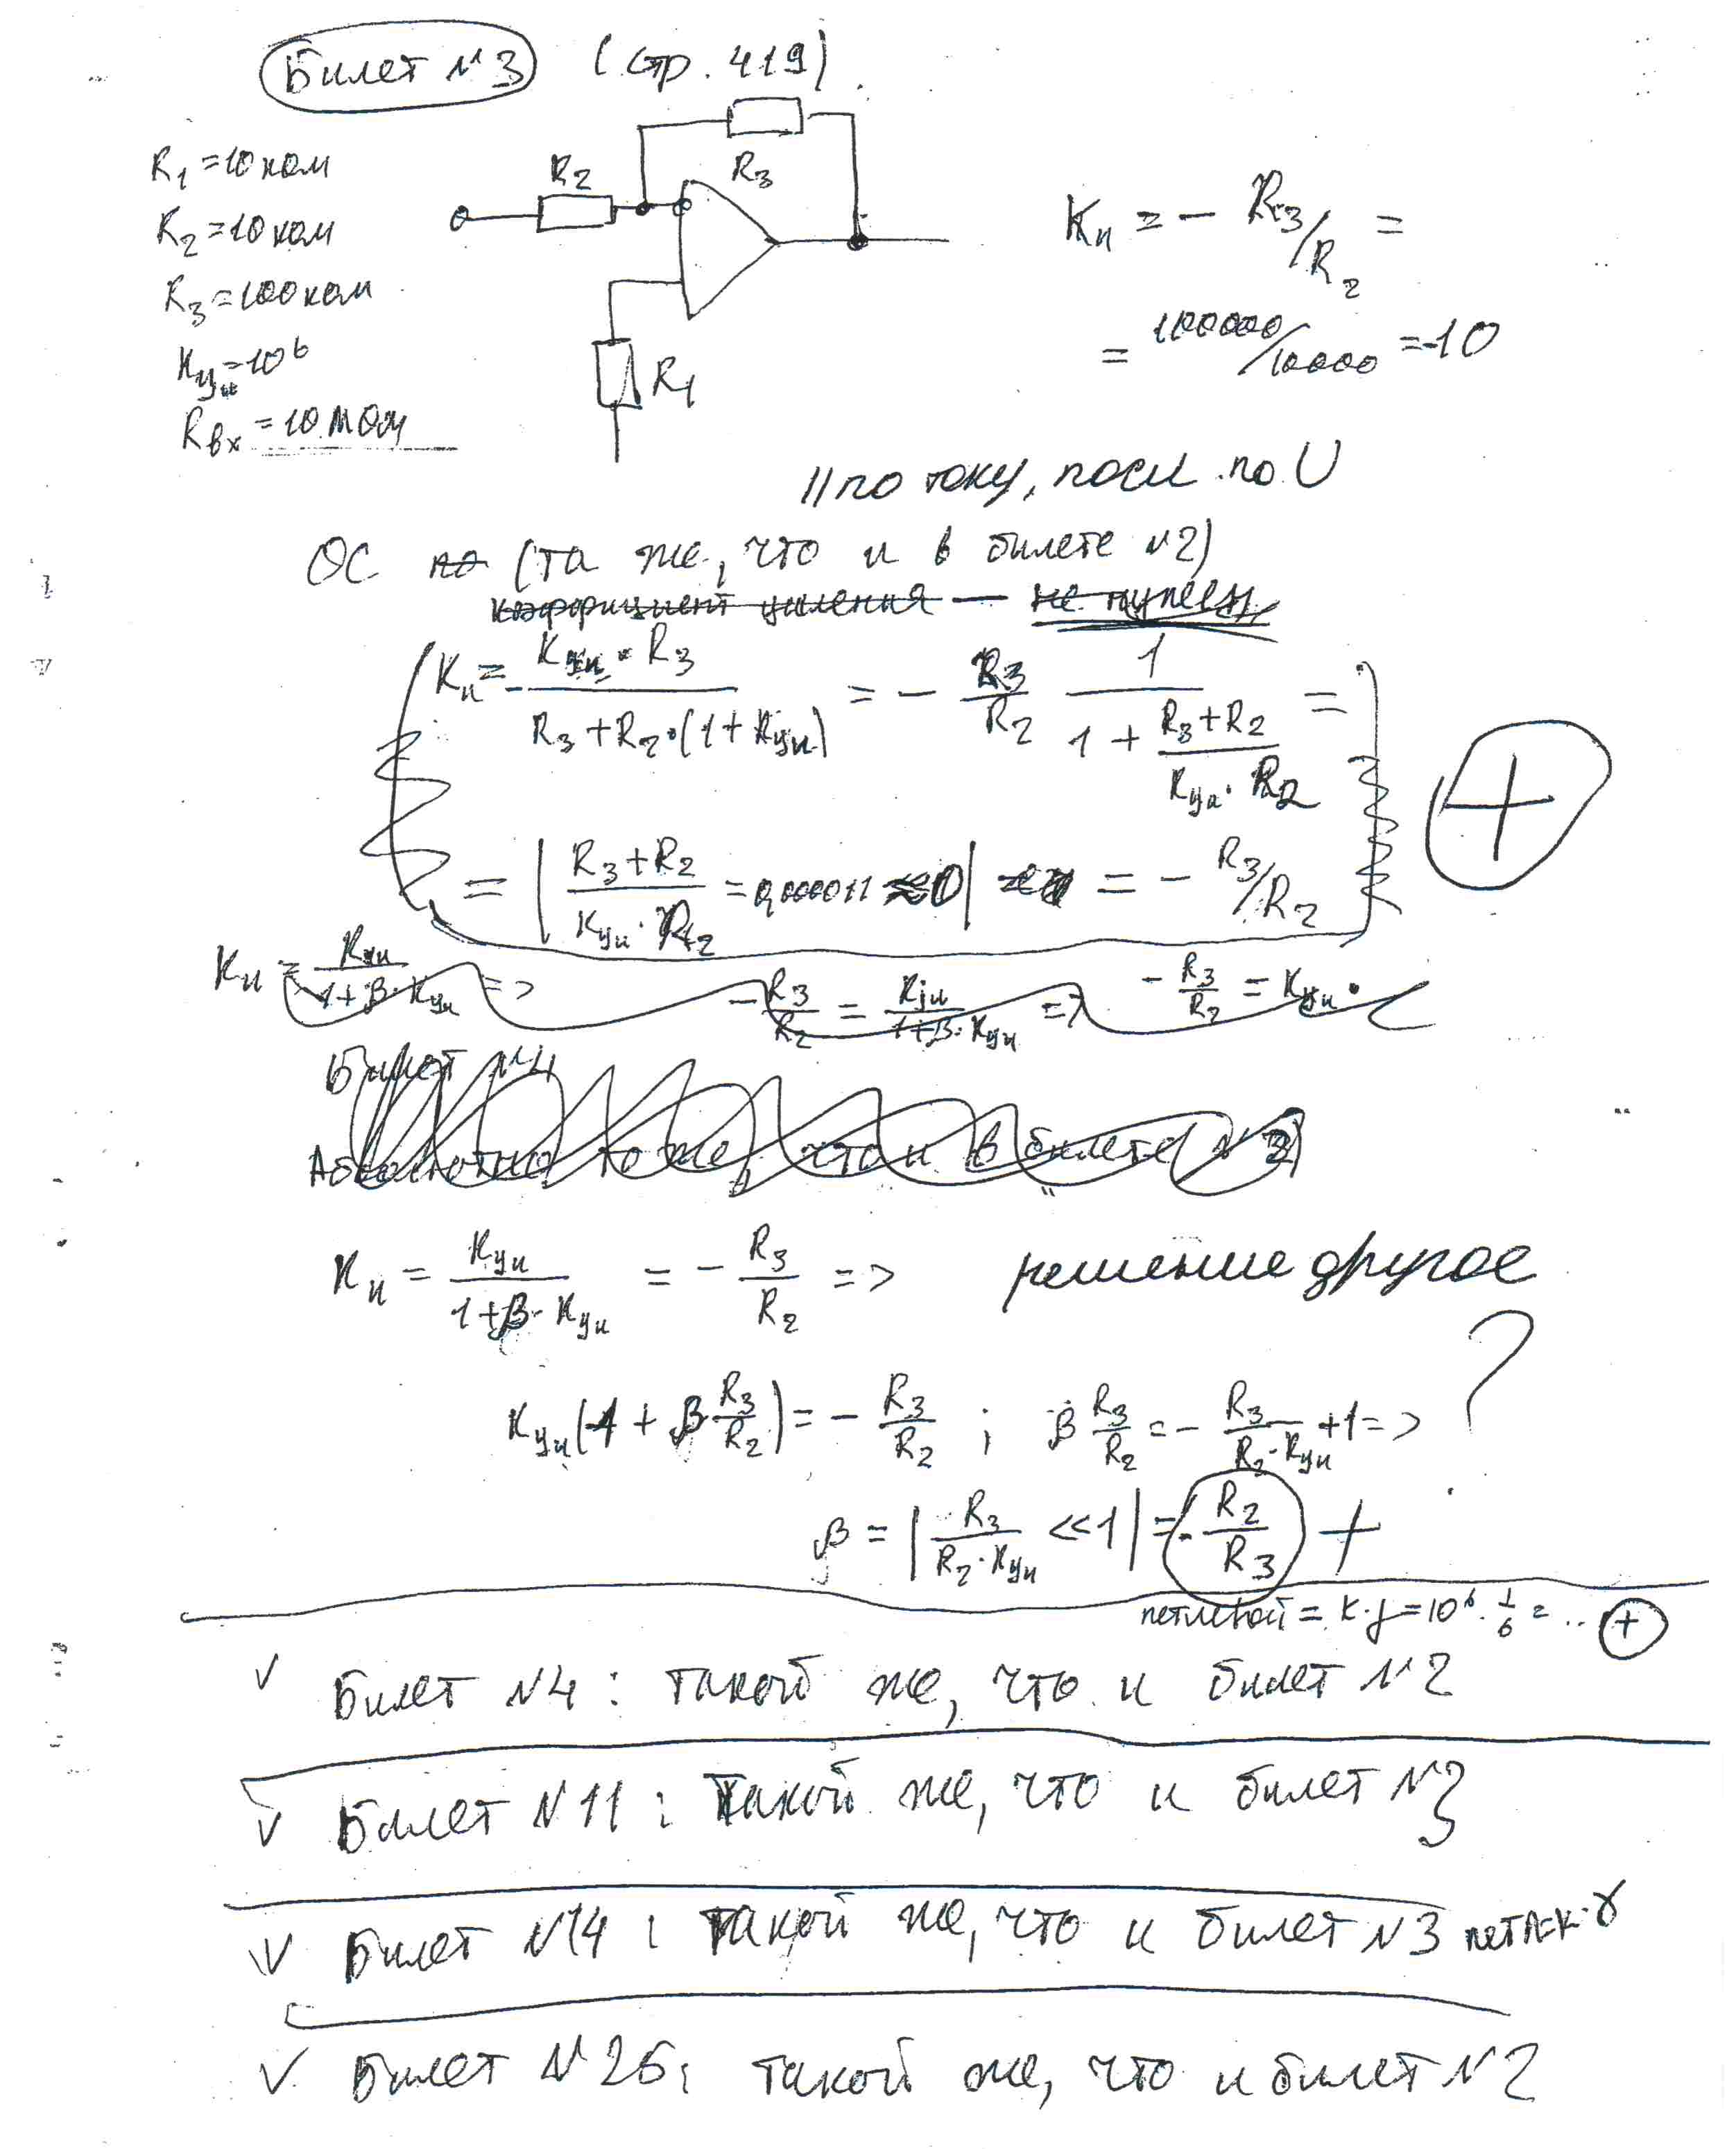 Билет №3 (стр. 419)
R1 = 10 ком
R2 = 10 ком
R3 = 100 ком
Kуи = 10^6
Rвх = 10 МОм
R2
R3
R1
Kи = - R3/R2 =
= 100000/10000 = -10
// по току, посл. по U
ОС по (та же, что и в билете №2)
коэффициент усиления — не нулеен
Kи = - Kуи · R3 / (R3 + R2 · (1 + Kуи)) = - R3/R2 · 1 / (1 + (R3 + R2)/(Kуи · R2)) =
= | (R3 + R2)/(Kуи · R2) = 0,000011 ≈ 0 | = - R3/R2
+
Kи = Kуи / (1 + β · Kуи) => - R3/R2 = Kуи / (1 + β · Kуи) => - R3/R2 = Kуи ·
Билет №4
Абсолютно то же, что и в билете №3)
Kи = Kуи / (1 + β · Kуи) = - R3/R2 => решение другое
?
Kуи (1 + β · R3/R2) = - R3/R2 ; β R3/R2 = - R3/(R2 · Kуи) + 1 =>
β = | R3/(R2 · Kуи) << 1 | = - R2/R3 +
петлевой = K · γ = 10^6 · 1/6 = ... +
√ Билет №4 : такой же, что и билет №2
√ Билет №11 : такой же, что и билет №3
√ Билет №14 : такой же, что и билет №3 петл = к · γ
√ Билет №26 : такой же, что и билет №2